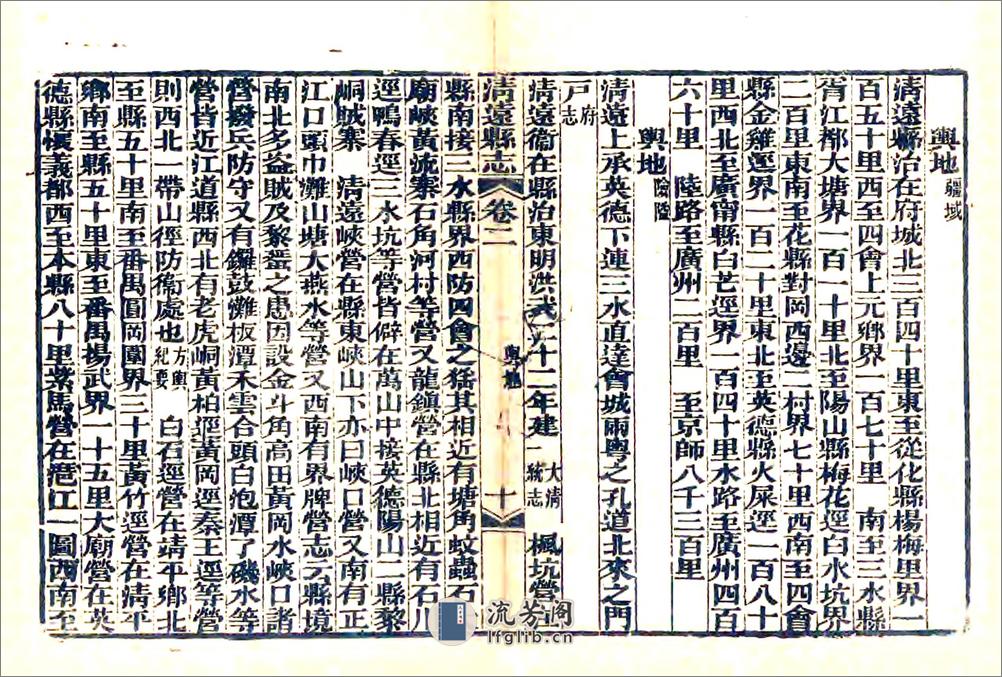 輿地 疆域
清遠縣治在府城北三百四十里東至從化縣楊梅里界一
百五十里西至四會上元鄉界一百七十里 南至三水縣
胥江都大塘界一百一十里北至陽山縣梅花逕白水坑界
二百里東南至花縣對岡西邊二村界七十里西南至四會
縣金雞逕界一百二十里東北至英德縣火屎逕一百八十
里西北至廣甯縣白芒逕界一百四十里水路至廣州四百
六十里 陸路至廣州二百里 至京師八千三百里
輿地 險隘
清遠上承英德下連三水直達會城兩粵之孔道北來之門
戸 府志
清遠衞在縣治東明洪武二十二年建 大清一統志 楓坑營在
清遠縣志 卷二 輿地 十
縣南接三水縣界西防四會之猺其相近有塘角蚊蟲石
廟峽黃流寨石角河村等營又龍鎮營在縣北相近有石川
逕鴨春逕三水坑等營皆僻在萬山中接英德陽山二縣黎
峒賊寨 清遠峽營在縣東峽山下亦曰峽口營又南有正
江口頭巾灘山塘大燕水等營又西南有界牌營志云縣境
南北多盜賊及黎蜑之患因設金斗角高田黃岡水峽口諸
營撥兵防守又有鑼鼓灘板潭禾雲合頭白泡潭了磯水等
營皆近江道縣西北有老虎峒黃柏逕黃岡逕秦王逕等營
則西北一帶山徑防衞處也 方輿紀要 白石逕營在靖平鄉北
至縣五十里南至番禺圓岡圍界三十里黃竹逕營在清平
鄉南至縣五十里東至番禺揚武界一十五里大廟營在英
德縣懷義都西至本縣八十里紫馬營在滘江一圖西南至
流芳阁
lfglib.cn